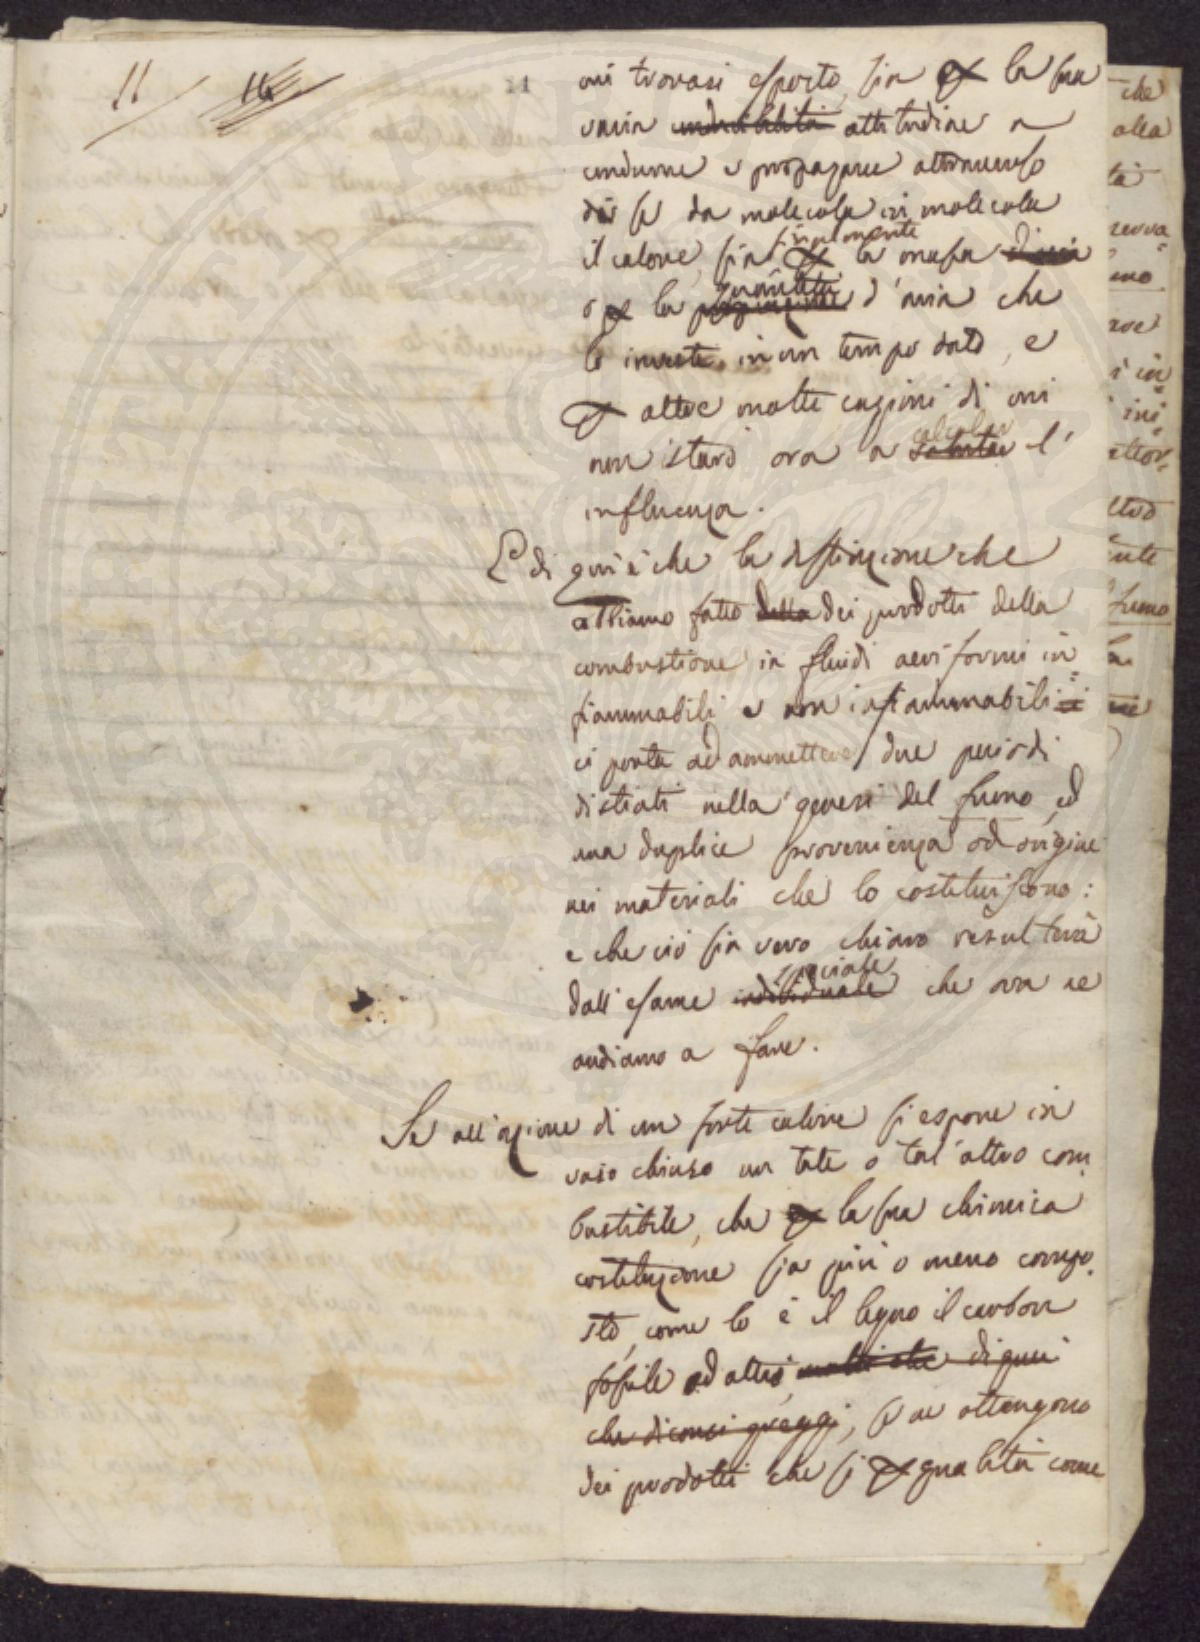 11 14 11
cui trovasi esposto, sia per la sua
varia conducibilità attitudine a
condurre e propagare attraverso
di se da molecola in molecola
il calore, sia finalmente per la massa d'aria
o per la quantità d'aria che
lo investe in un tempo dato, e
per altre molte cagioni di cui
non istarò ora a calcolar valutare l'
influenza.
E di qui è che la distinzione che
abbiamo fatto della dei prodotti della
combustione in fluidi aeriformi in=
fiammabili e non infiammabili
ci porta ad ammettere due periodi
distinti nella genesi del fumo, ed
una duplice provenienza od origine
nei materiali che lo costituiscono:
e che ciò sia vero chiaro resulterà
dall'esame speciale individuale che ora ne
andiamo a fare.
Se all'azione di un forte calore si espone in
vaso chiuso un tale o tal'altro com
bustibile, che per la sua chimica
costituzione sia più o meno compo
sto, come lo è il legno il carbon
fossile ed altri, molti altri di quei
che diconsi greggi, se ne ottengono
dei prodotti che sì per qualità come